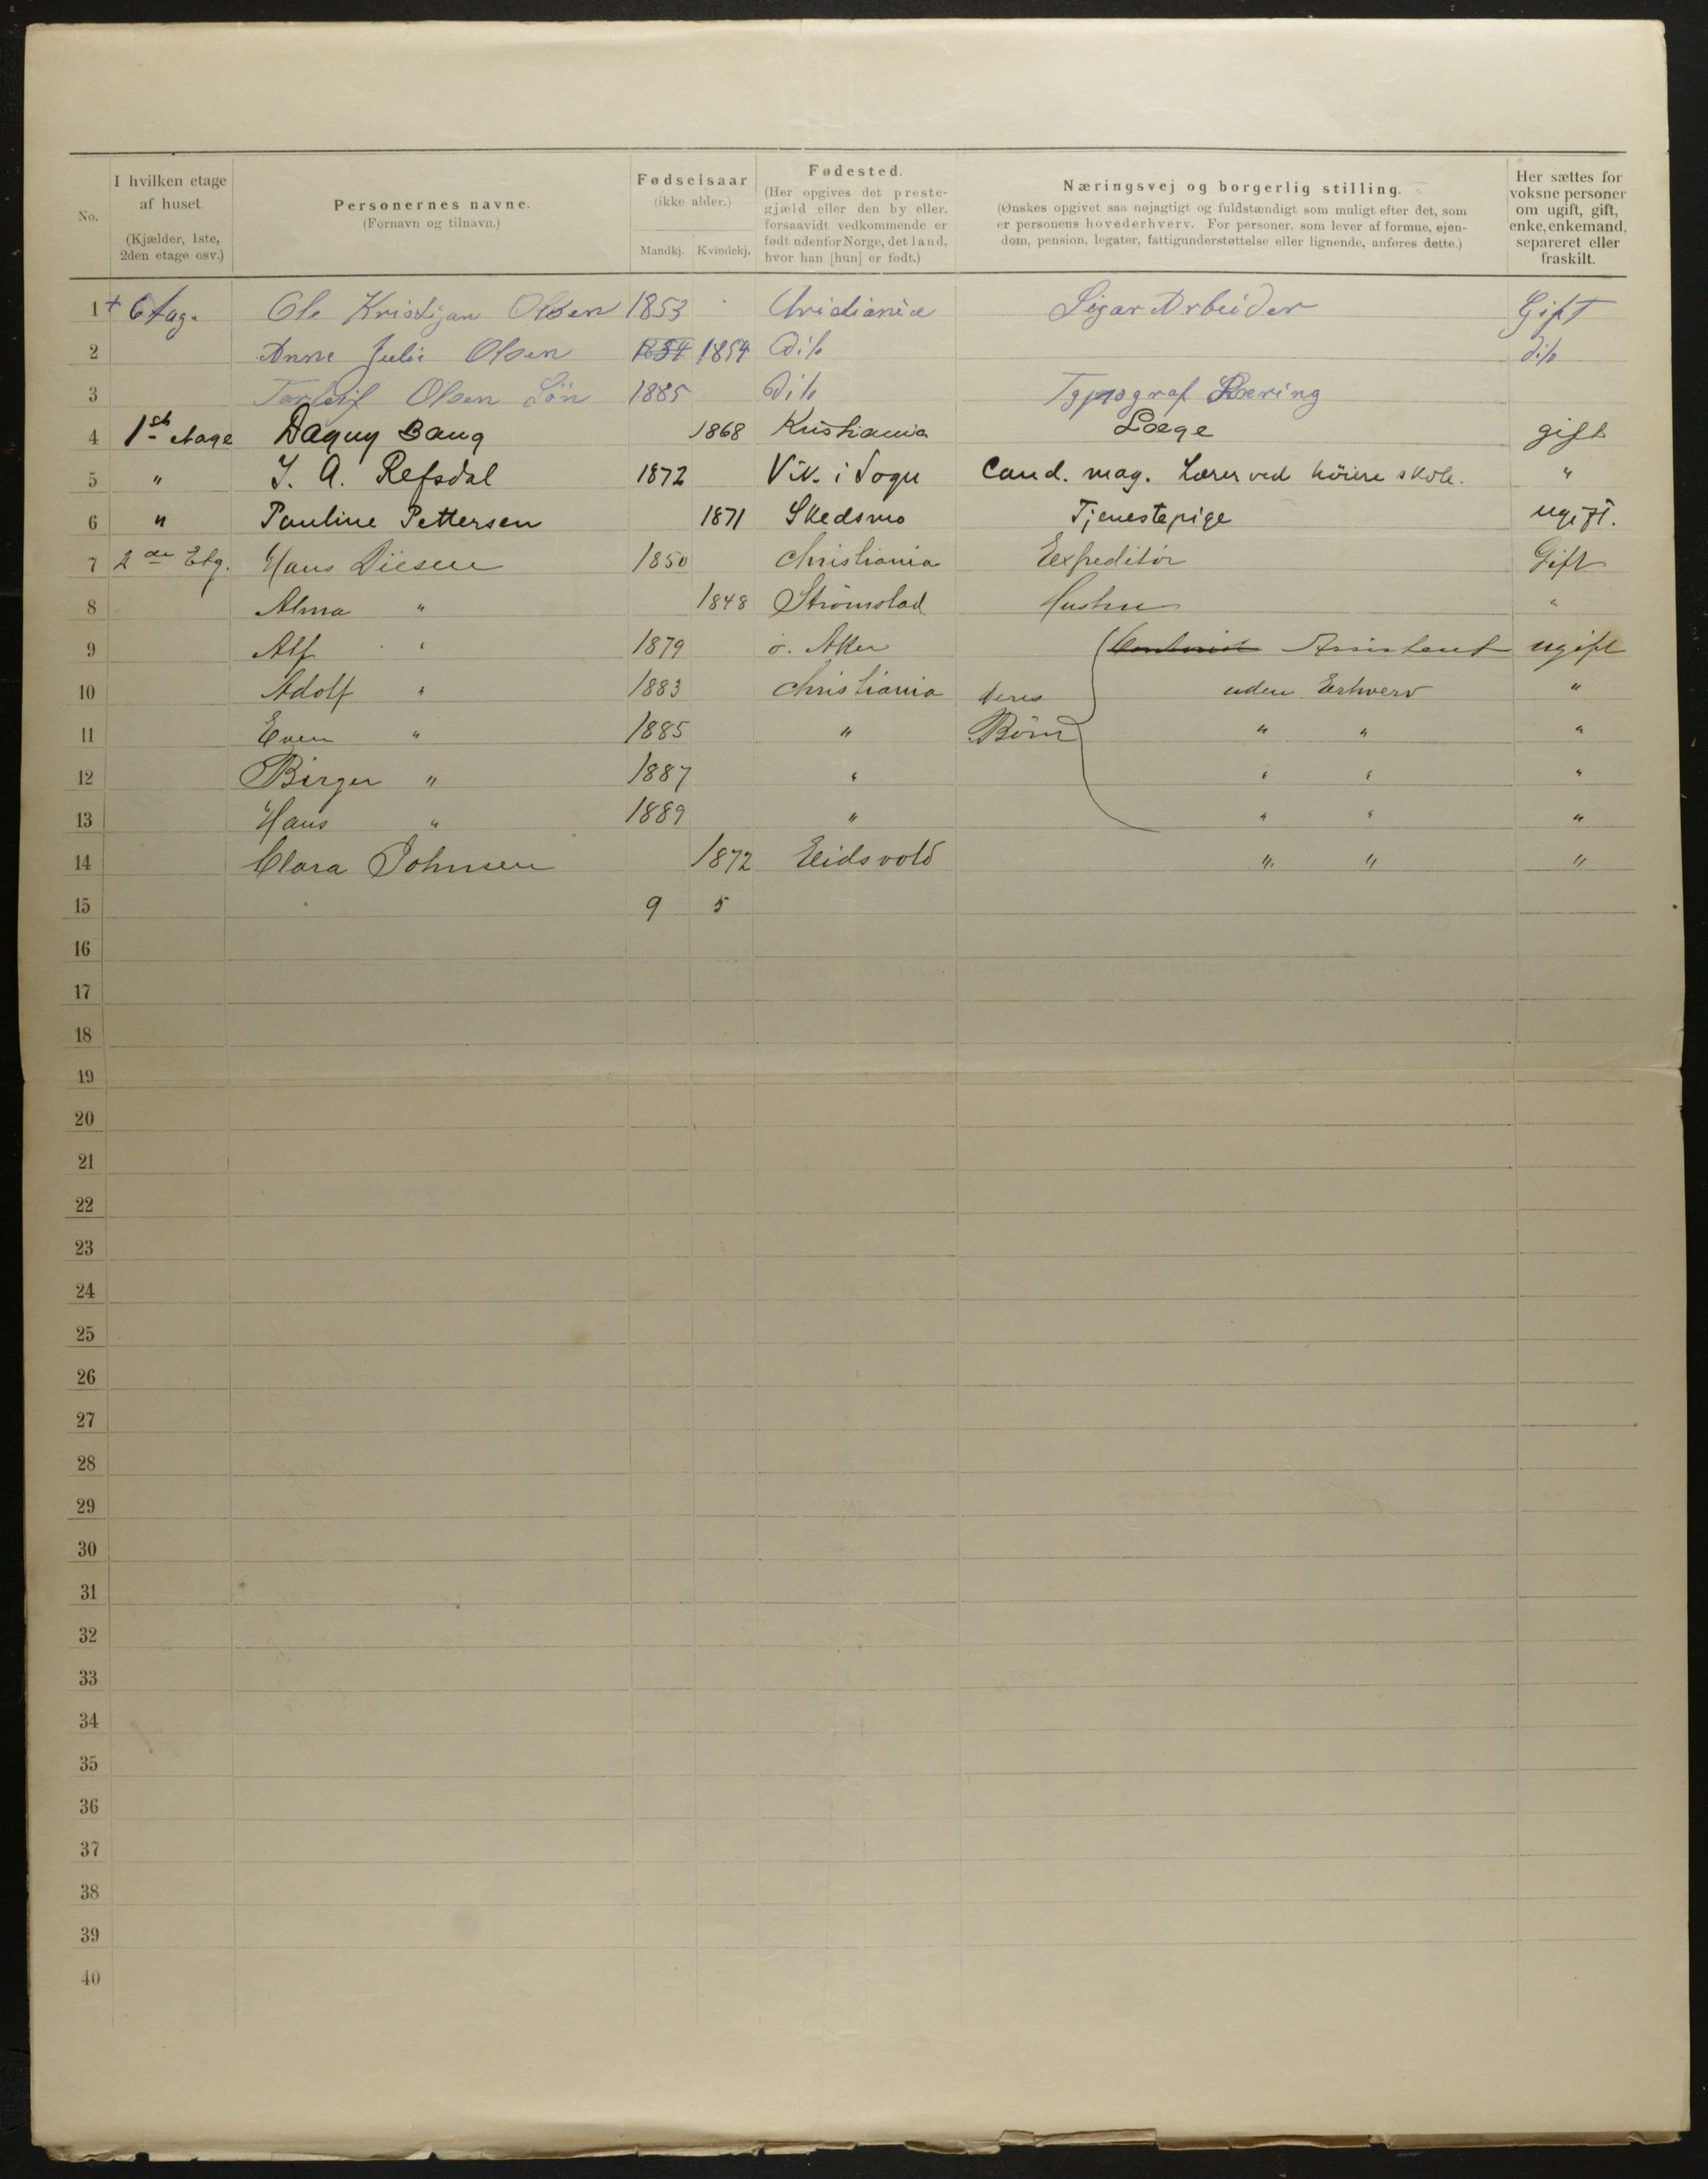 No.
I hvilken etage
af huset.
(Kjælder, 1ste,
2den etage osv.)
Personernes navne.
(Fornavn og tilnavn.)
Fødselsaar
(ikke alder.)
Mandkj. Kvindekj.
Fødested.
(Her opgives det preste-
gjæld eller den by eller,
forsaavidt vedkommende er
født udenfor Norge, det land,
hvor han [hun] er født.)
Næringsvej og borgerlig stilling.
(Ønskes opgivet saa nøjagtigt og fuldstændigt som muligt efter det, som
er personens hovederhverv. For personer, som lever af formue, ejen-
dom, pension, legater, fattigunderstøttelse eller lignende, anføres dette.)
Her sættes for
voksne personer
om ugift, gift,
enke, enkemand,
separeret eller
fraskilt.
1 + Ole Kristjan Olsen 1853 Sigar Arbeider Gift
2 Anne Julie Olsen 1854 Dito dito
3 Olsen Sön 1885 Dito Typograf Læring
4 1st etage Dagny Bang 1868 Kristiania Læge gift
5 " J. A. Refsdal 1872 Vik i Sogn Cand. mag. Lærer ved höiere skole. "
6 " Pauline Pettersen 1871 Skedsmo Tjenestepige ugift.
7 2den Etg. Hans Diesen 1850 Christiania Expeditör Gift
8 Alma " 1848 Strömstad Hustru "
9 Alf " 1879 ö. Aker Assistent ugift
10 Adolf " 1883 Christiania deres uden Erhverv "
11 Even " 1885 " Börn " " "
12 Birger " 1887 " " " "
13 Hans " 1889 " " " "
14 Clara Johnsen 1872 Eidsvold " " "
15 9 5
16
17
18
19
20
21
22
23
24
25
26
27
28
29
30
31
32
33
34
35
36
37
38
39
40